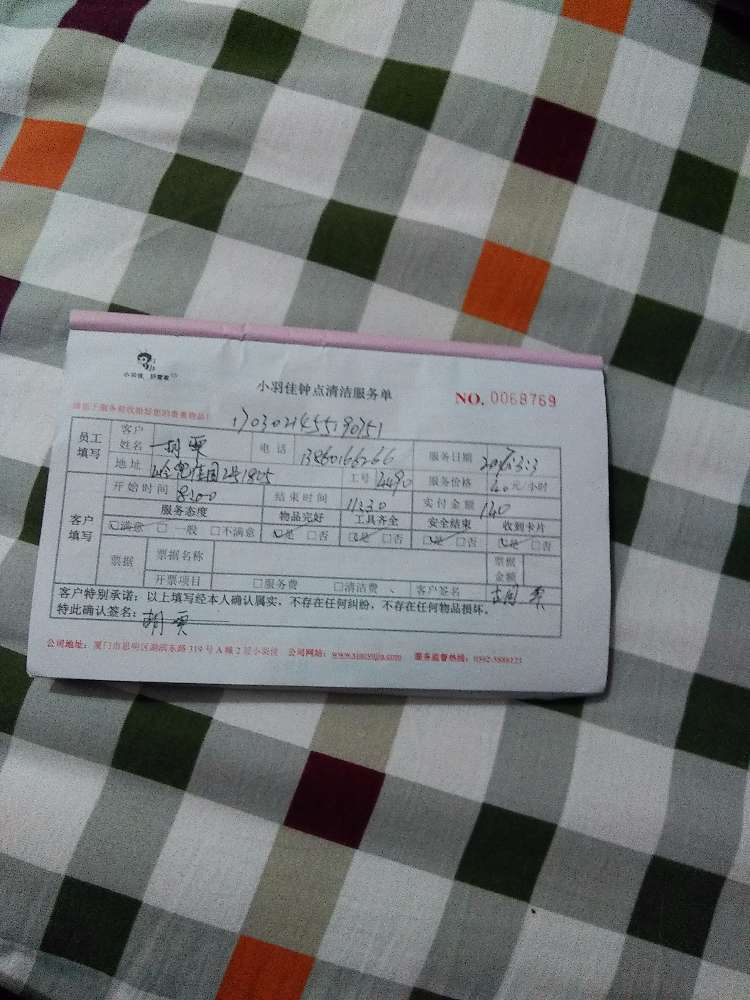 小羽佳 好管家
小羽佳钟点清洁服务单
NO. 0068769
请您于服务前收拾好您的贵重物品!
1703021455190751
员工填写 客户姓名 胡 电话 13860166266 服务日期 2017.3.3
地址 2号1805 工号 2490 服务价格 40元/小时
客户填写 开始时间 8:00 结束时间 11:30 实付金额 140
服务态度 物品完好 工具齐全 安全结束 收到卡片
□满意 □一般 □不满意 □是 □否 □是 □否 □是 □否 □是 □否
票据 票据名称 票据金额
开票项目 □服务费 □清洁费、 客户签名 胡
客户特别承诺:以上填写经本人确认属实、不存在任何纠纷,不存在任何物品损坏。
特此确认签名: 胡
公司地址:厦门市思明区湖滨东路319号A幢2层小羽佳 公司网站:www.xiaoyujia.com 服务监督热线:0592-5888123